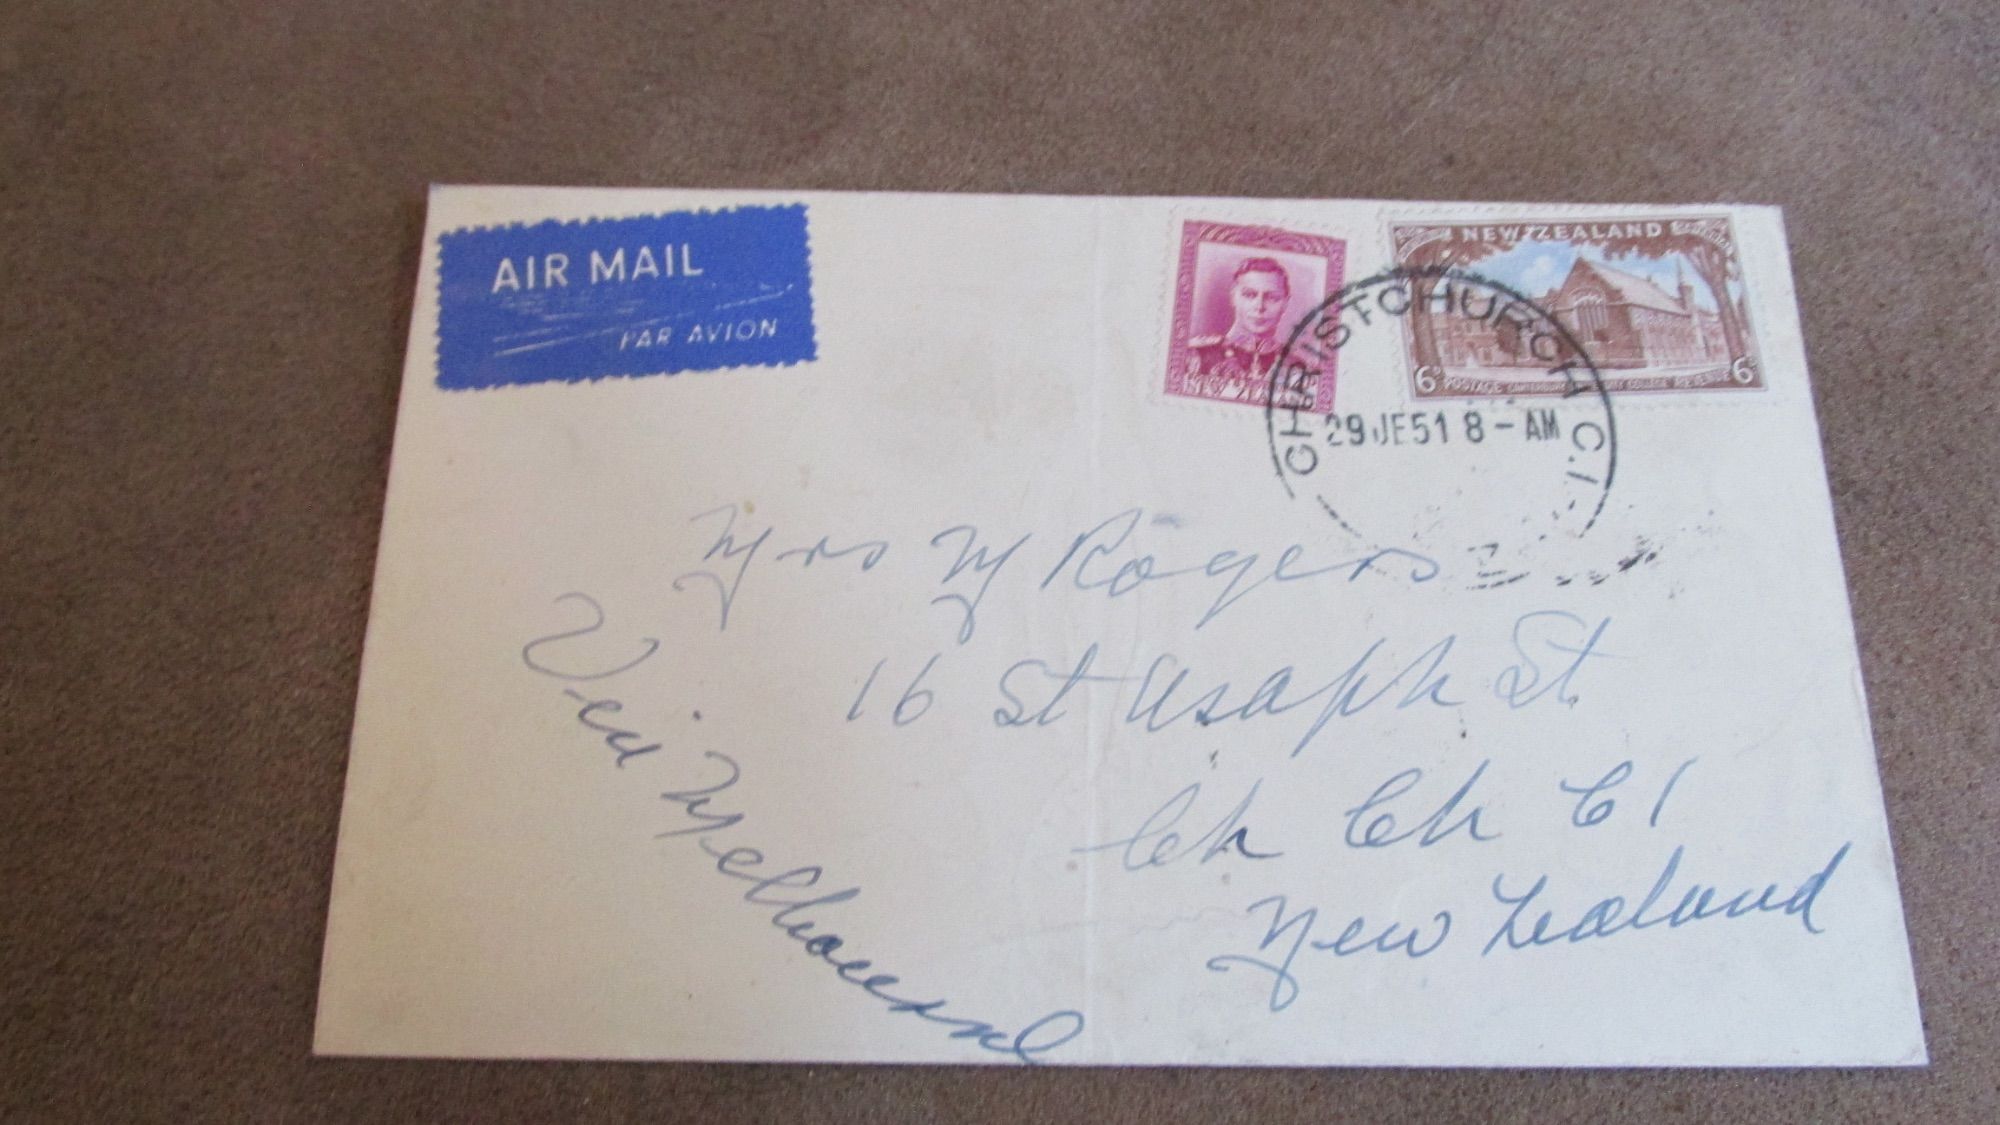 AIR MAIL
PAR AVION
NEW ZEALAND
NEW ZEALAND
6D POSTAGE CANTERBURY COLLEGE REVENUE 6D
CHRISTCHURCH C.1
29 JE51 8 - AM
Mrs M Rogers
16 St Asaph St
Ch Ch C1
New Zealand
Via Melbourne